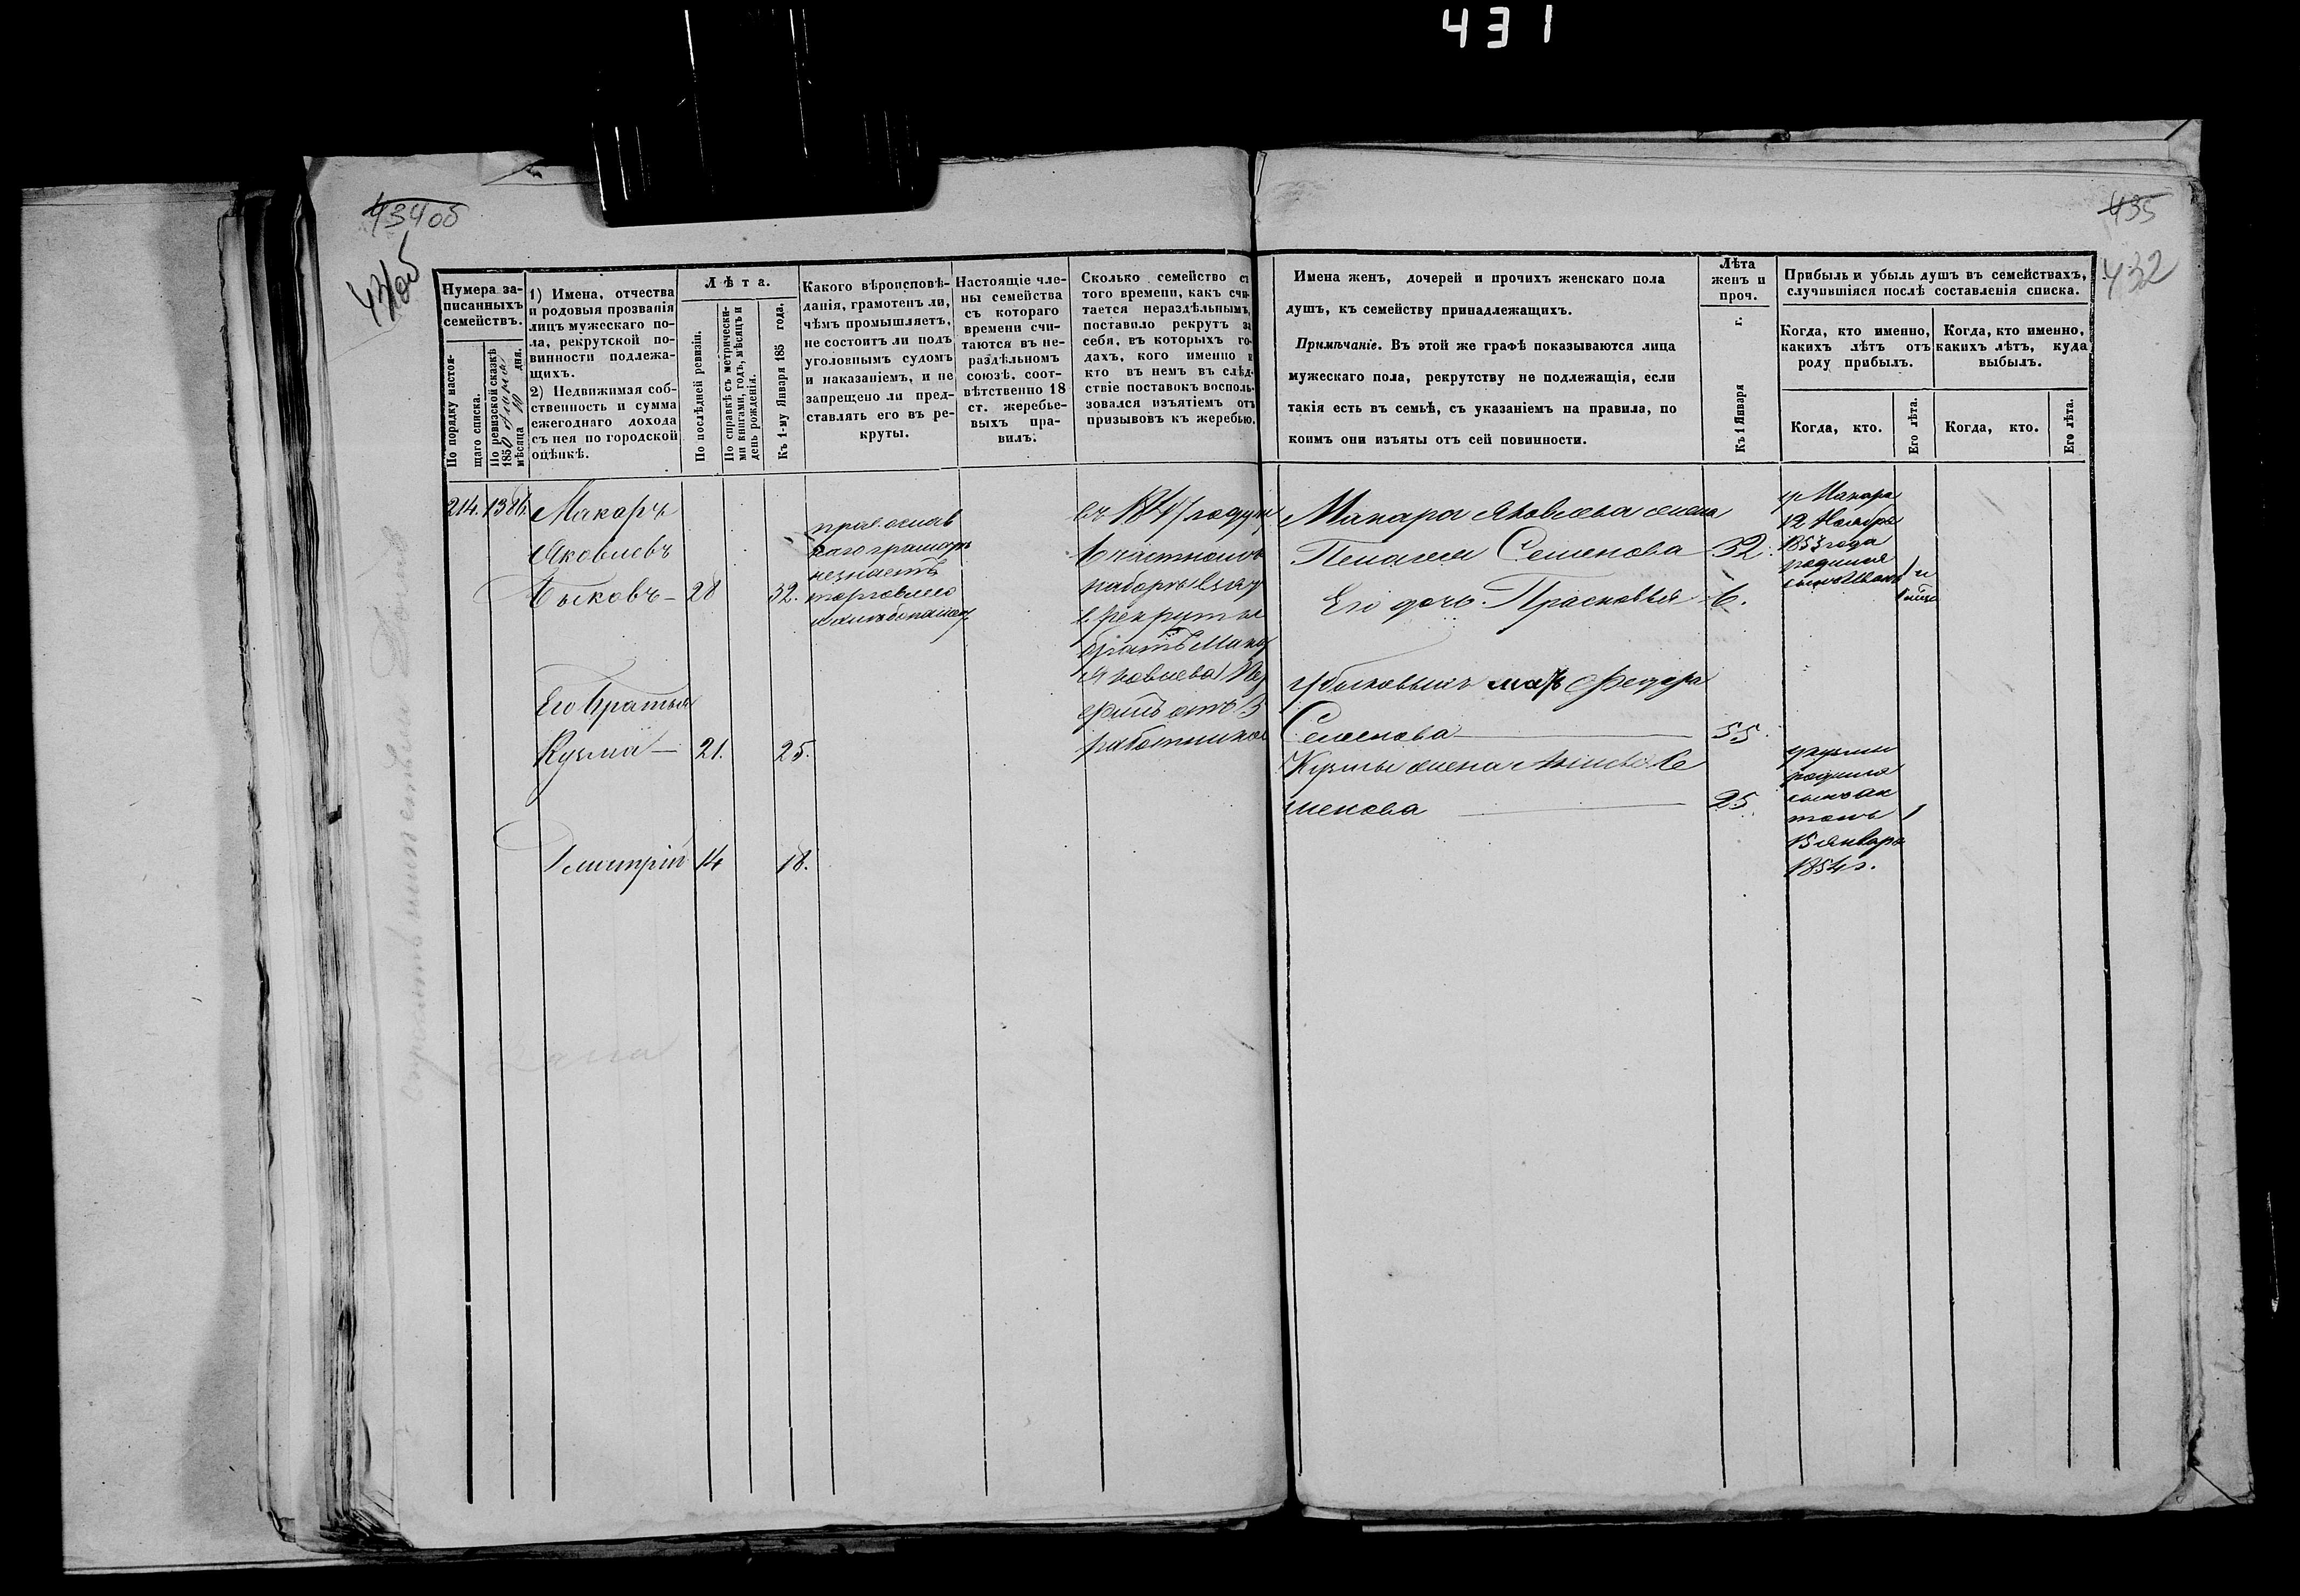 431
434об
431об
435
432
Нумера записанныхъ семействъ.
По порядку настоящаго списка.
По ревизской сказкѣ 1850 мѣсяца дня.
1) Имена, отчества
и родовыя прозванія
лицъ мужескаго по-
ла, рекрутской по-
винности подлежа-
щихъ.
2) Недвижимая соб-
ственность и сумма
ежегоднаго дохода
съ нея по городской
оцѣнкѣ.
Лѣта.
По послѣдней ревизіи.
По справкѣ съ метрически-
ми книгами, годъ, мѣсяцъ и
день рожденія.
Къ 1-му Января 185 года.
Какого вѣроисповѣ-
данія, грамотенъ ли,
чѣмъ промышляетъ,
не состоитъ ли подъ
уголовнымъ судомъ
и наказаніемъ, и не
запрещено ли пред-
ставлять его въ ре-
круты.
Настоящіе чле-
ны семейства
съ котораго
времени счи-
таются въ не-
раздѣльномъ
союзѣ, соот-
вѣтственно 18
ст. жеребье-
выхъ пра-
вилъ.
Сколько семейство съ
того времени, какъ счи-
тается нераздѣльнымъ,
поставило рекрутъ за
себя, въ которыхъ го-
дахъ, кого именно и
кто въ немъ въ слѣд-
ствіе поставокъ восполь-
зовался изъятіемъ отъ
призывовъ къ жеребью.
Имена женъ, дочерей и прочихъ женскаго пола
душъ, къ семейству принадлежащихъ.
Примѣчаніе. Въ этой же графѣ показываются лица
мужескаго пола, рекрутству не подлежащія, если
такія есть въ семьѣ, съ указаніемъ на правила, по
коимъ они изъяты отъ сей повинности.
Лѣта
женъ и
проч.
Къ 1 Января г.
Прибыль и убыль душъ въ семействахъ,
случившіяся послѣ составленія списка.
Когда, кто именно,
какихъ лѣтъ отъ
роду прибылъ.
Когда, кто именно,
какихъ лѣтъ, куда
выбылъ.
Когда, кто.
Его лѣта.
Когда, кто.
Его лѣта.
214. 1386. Макаръ
Яковлевъ
Быковъ 28 32.
православ
наго грамоты
незнаетъ
торговлею
и хлебопашец
въ 1847 году
в частномъ
наборе взят
в рекруты
братъ Мака
Яковлева
работников
Его братья
Кузма 21. 25.
Дмитрій 14 18.
Макара Яковлева жена
Пелагея Семенова 32.
Его дочь Прасковья 6.
У Быковыхъ мать Федора
Семенова 55.
Кузмы жена Се
менова 25.
у Макара
12 Ноября
1853 года
родился
сынъ Иванъ
у Кузмы
родился
сынъ Ан
тонъ 1
15 Января
1854 г.